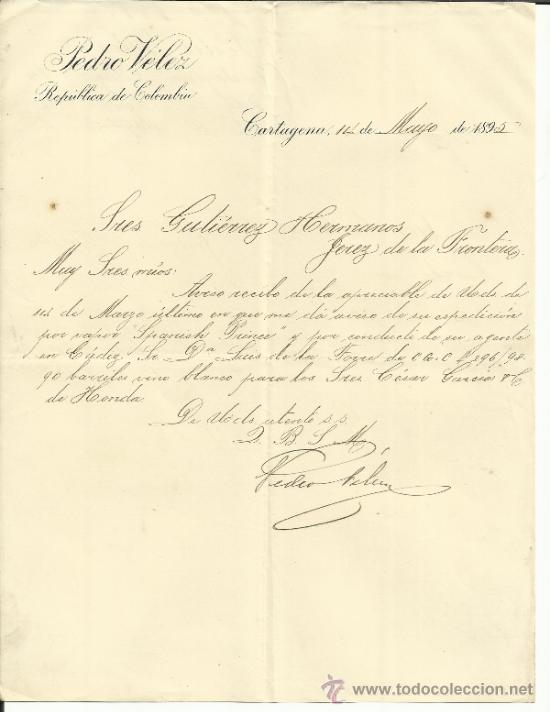 Pedro Vélez
República de Colombia
Cartagena, 14 de Mayo de 1895
Sres Gutiérrez Hermanos
Jerez de la Frontera.
Muy Sres mios:
Aviso recibo de la apreciable de Uds. de
14 de Marzo último en que me dá aviso de su espedición
por vapor "Spanish Prince" y por conducto de su agente
en Cádiz, Sr Dn Luis de la Torre de C G C 896/98-
90 barriles vino blanco para los Sres César García & C
de Honda.
De Uds atento s.s.
Q. B. S. M,
Pedro Velez
www.todocoleccion.net